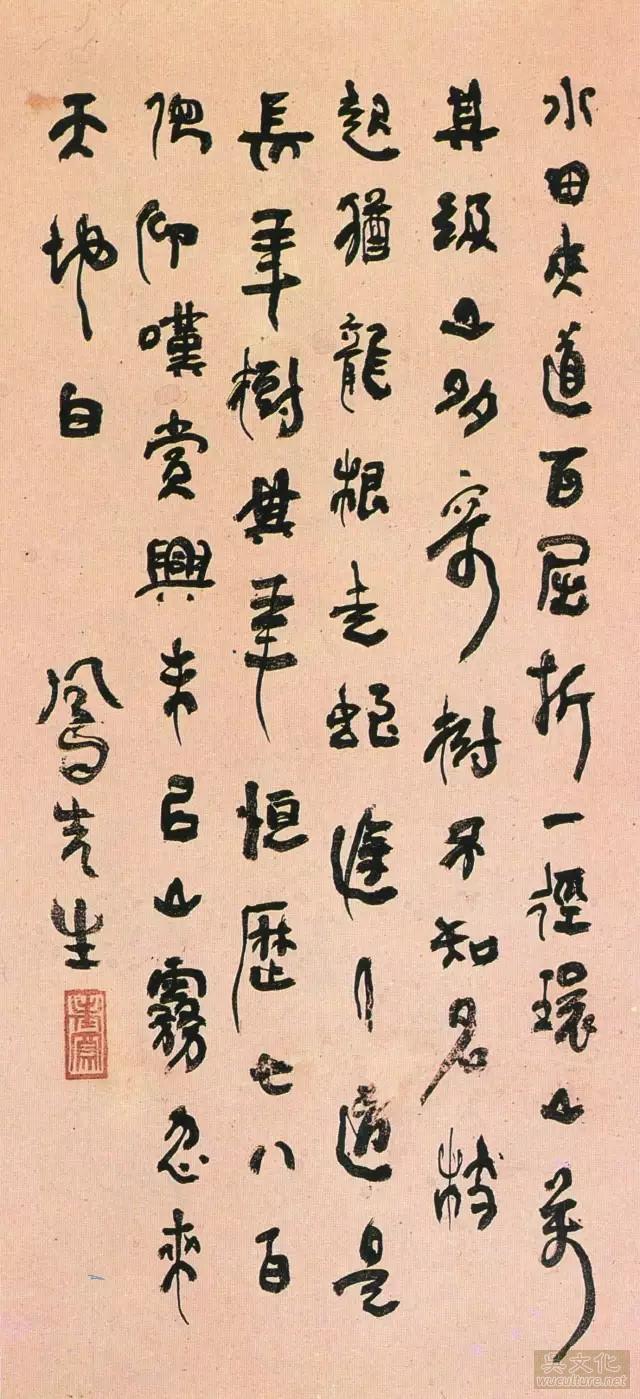 水田夾道百屈折一徑環山萬
其級山多奇樹不知名枝
起猶龍根走蛇遂道是
長年樹其年恒歷七八百
俯仰嘆賞興未已山霧忽來
天地白
鳳先生
吳文化
wuculture.net